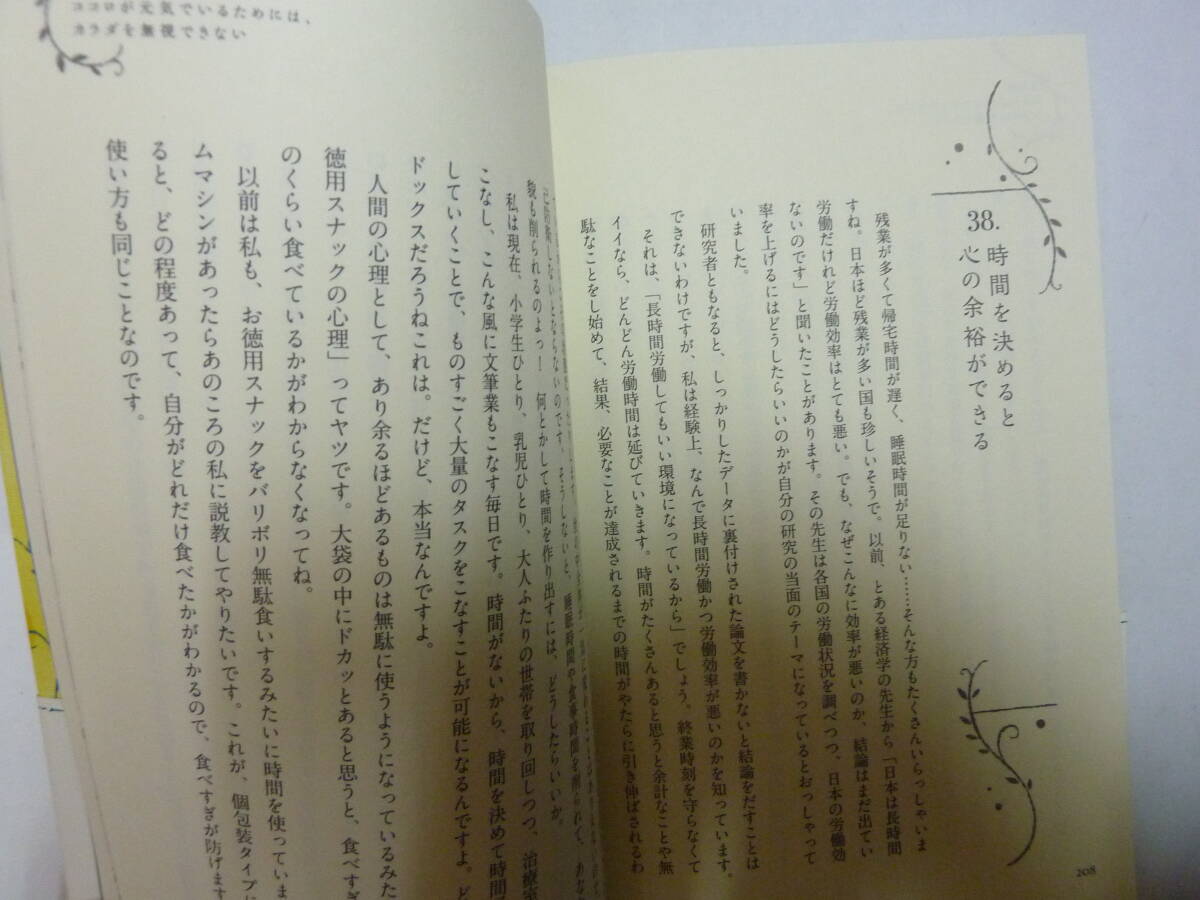 38.
時間を決めると
心の余裕ができる
残業が多くて帰宅時間が遅く、睡眠時間が足りない……そんな方もたくさんいらっしゃいま
すね。日本ほど残業が多い国も珍しいそうで。以前、とある経済学の先生から「日本は長時間
労働だけれど労働効率はとても悪い。でも、なぜこんなに効率が悪いのか、結論はまだ出てい
ないのです」と聞いたことがあります。その先生は各国の労働状況を調べつつ、日本の労働効
率を上げるにはどうしたらいいのかが自分の研究の当面のテーマになっているとおっしゃって
いました。
研究者ともなると、しっかりしたデータに裏付けされた論文を書かないと結論をだすことは
できないわけですが、私は経験上、なんで長時間労働かつ労働効率が悪いのかを知っています。
それは、「長時間労働してもいい環境になっているから」でしょう。終業時刻を守らなくて
イイなら、どんどん労働時間は延びていきます。時間がたくさんあると思うと余計なことや無
駄なことをし始めて、結果、必要なことが達成されるまでの時間がやたらに引き伸ばされるわ
208
ココロが元気でいるためには、
カラダを無視できない
そうしないと、睡眠時間や食事時間を削られて、
貌も削られるのよっ！　何とかして時間を作り出すには、どうしたらいいか。
私は現在、小学生ひとり、乳児ひとり、大人ふたりの世帯を取り回しつつ、治療
こなし、こんな風に文筆業もこなす毎日です。時間がないから、時間を決めて時間
していくことで、ものすごく大量のタスクをこなすことが可能になるんですよ。
ドックスだろうねこれは。だけど、本当なんですよ。
人間の心理として、あり余るほどあるものは無駄に使うようになっているみた
徳用スナックの心理」ってヤツです。大袋の中にドカッとあると思うと、食べすぎ
のくらい食べているかがわからなくなってね。
以前は私も、お徳用スナックをバリボリ無駄食いするみたいに時間を使っていま
ムマシンがあったらあのころの私に説教してやりたいです。これが、個包装タイプ
ると、どの程度あって、自分がどれだけ食べたかがわかるので、食べすぎが防げます
使い方も同じことなのです。